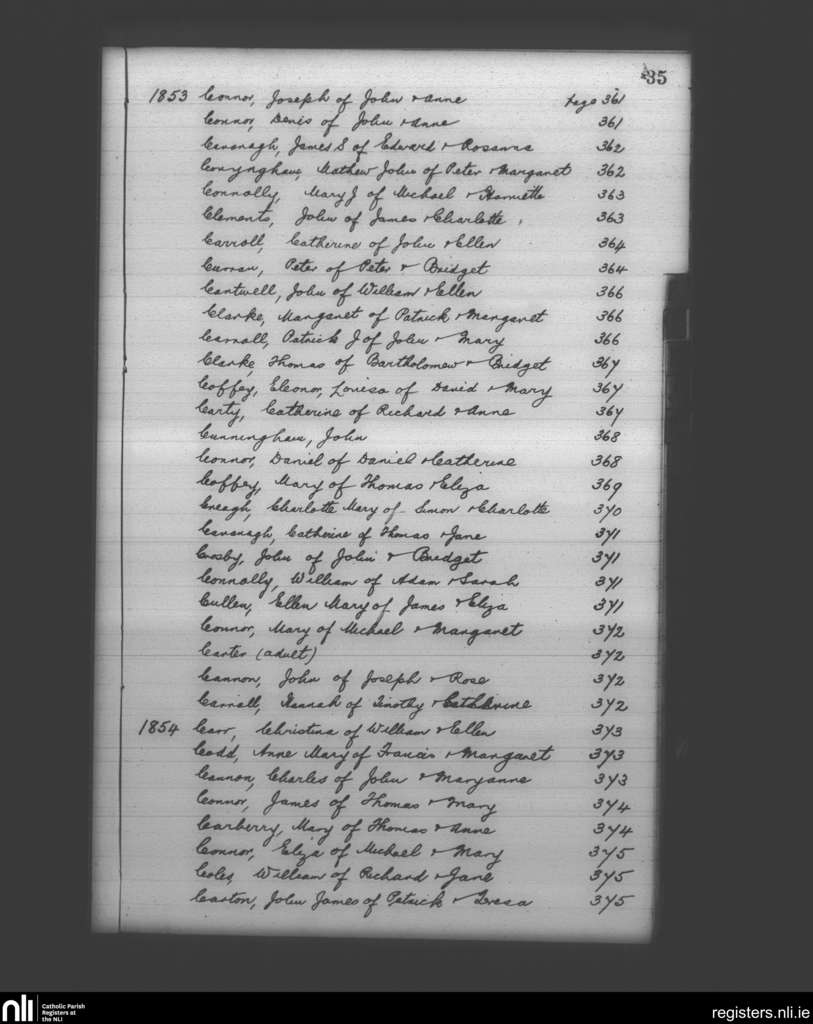 35
1853 Connor, Joseph of John & Anne Page 361
Connor, Denis of John & Anne 361
Cavanagh, James S of Edward & Rosanna 362
Conyngham, Mathew John of Peter & Margaret 362
Connolly, Mary J of Michael & Harriette 363
Clements, John of James & Charlotte 363
Carroll, Catherine of John & Ellen 364
Curran, Peter of Peter & Bridget 364
Cantwell, John of William & Ellen 366
Clarke, Margaret of Patrick & Margaret 366
Carroll, Patrick J of John & Mary 366
Clarke, Thomas of Bartholomew & Bridget 367
Coffey, Eleonor, Louisa of David & Mary 367
Carty, Catherine of Richard & Anne 367
Cunningham, John 368
Connor, Daniel of Daniel & Catherine 368
Coffey, Mary of Thomas & Eliza 369
Creagh, Charlotte Mary of Simon & Charlotte 370
Cavanagh, Catherine of Thomas & Jane 371
Crosby, John of John & Bridget 371
Connolly, William of Adam & Sarah 371
Cullen, Ellen Mary of James & Eliza 371
Connor, Mary of Michael & Margaret 372
Carter (adult) 372
Cannon, John of Joseph & Rose 372
Carroll, Hannah of Timothy & Catherine 372
1854 Carr, Christina of William & Ellen 373
Codd, Anne Mary of Francis & Margaret 373
Cannon, Charles of John & Maryanne 373
Connor, James of Thomas & Mary 374
Carberry, Mary of Thomas & Anne 374
Connor, Eliza of Michael & Mary 375
Coles, William of Richard & Jane 375
Caston, John James of Patrick & Teresa 375
nli Catholic Parish
Registers at
the NLI
registers.nli.ie